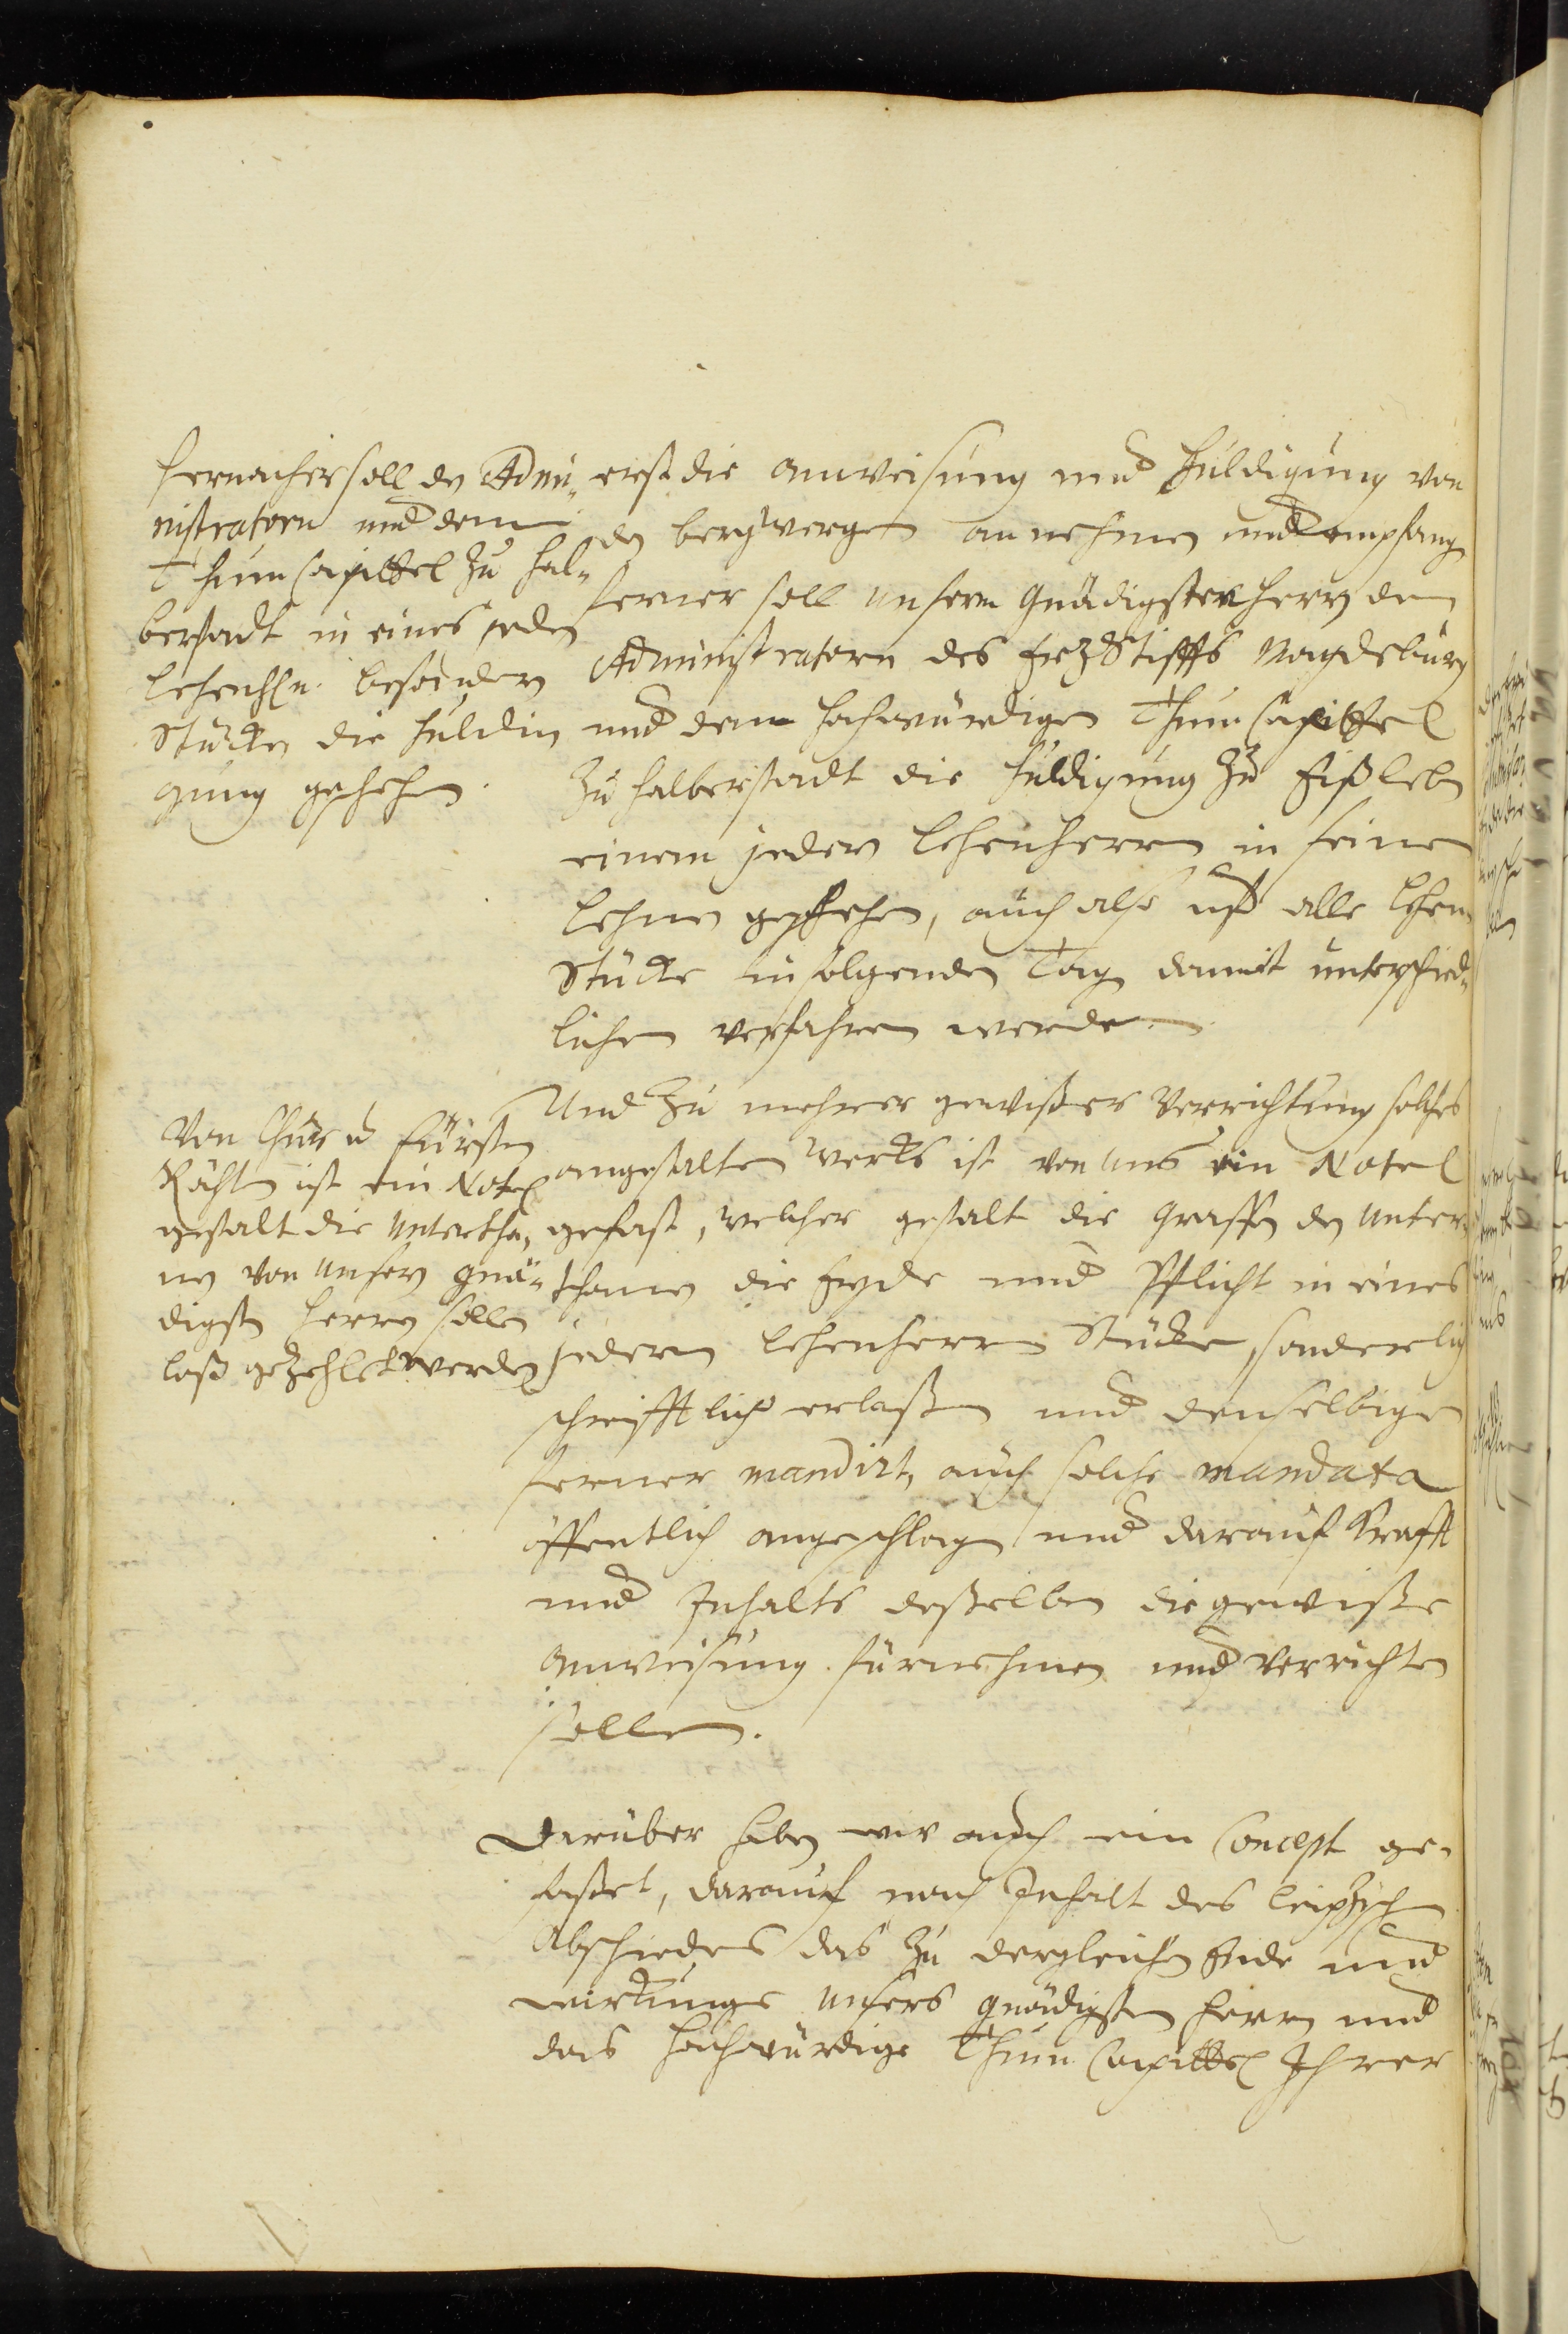 Hernacher soll dem Admi„
nistratorn und dem
ThumCapittel zu Hal„
berstadt in eines jeden
Lehenhn. besondern
Stücken die Huldi„
gung geschehen.
erst die anweisung und Huldigung von
den bergkwergen an nehmen und empfangen
ferner soll unserm Gnädigsten Herrn dem
Administratorn des ErzStiffts Magdeburg
und dem hochwürdigen ThumCapittel
zu Halberstadt die Huldigung zu Eißleben
einem jedern Lehenherrn in seinen
Lehnen geschehen, auch also uff alle Lehen
Stücke in folgenden Tag damit unterschied„
lichen verfahren werden.
Von Chur u Fürsten
Räthen ist ein Notel
gestalt die Untertha„
nen von unsern gnä„
digsten Herrn sollen
loß gezehlet werden
Und zu mehrer gewißer Verrichtung solches
angestalten Werks ist von uns ein Notel
gefast, welcher gestalt die Graffen den Unter„
thanen die Eyde und Pflicht in eines
jedern Lehenherrn Stücken, sonderlich
schrifftlich erlaßen und denselbigen
ferner mandirt, auch solche mandata
öffentlich angeschlagen und darauf Krafft
und Inhalts deßelben die gewiße
anweisung fürnehmen und verrichten
sollen.
Darüber haben wir auch ein Concept ge„
faßet, darauf nach Inhalt des Leipzischen
Abschiedes das zu dergleichen Ende und
wirkunge unsers gnädigsten Herrn und
das Hochwürdige Thum Capittel Ihrer